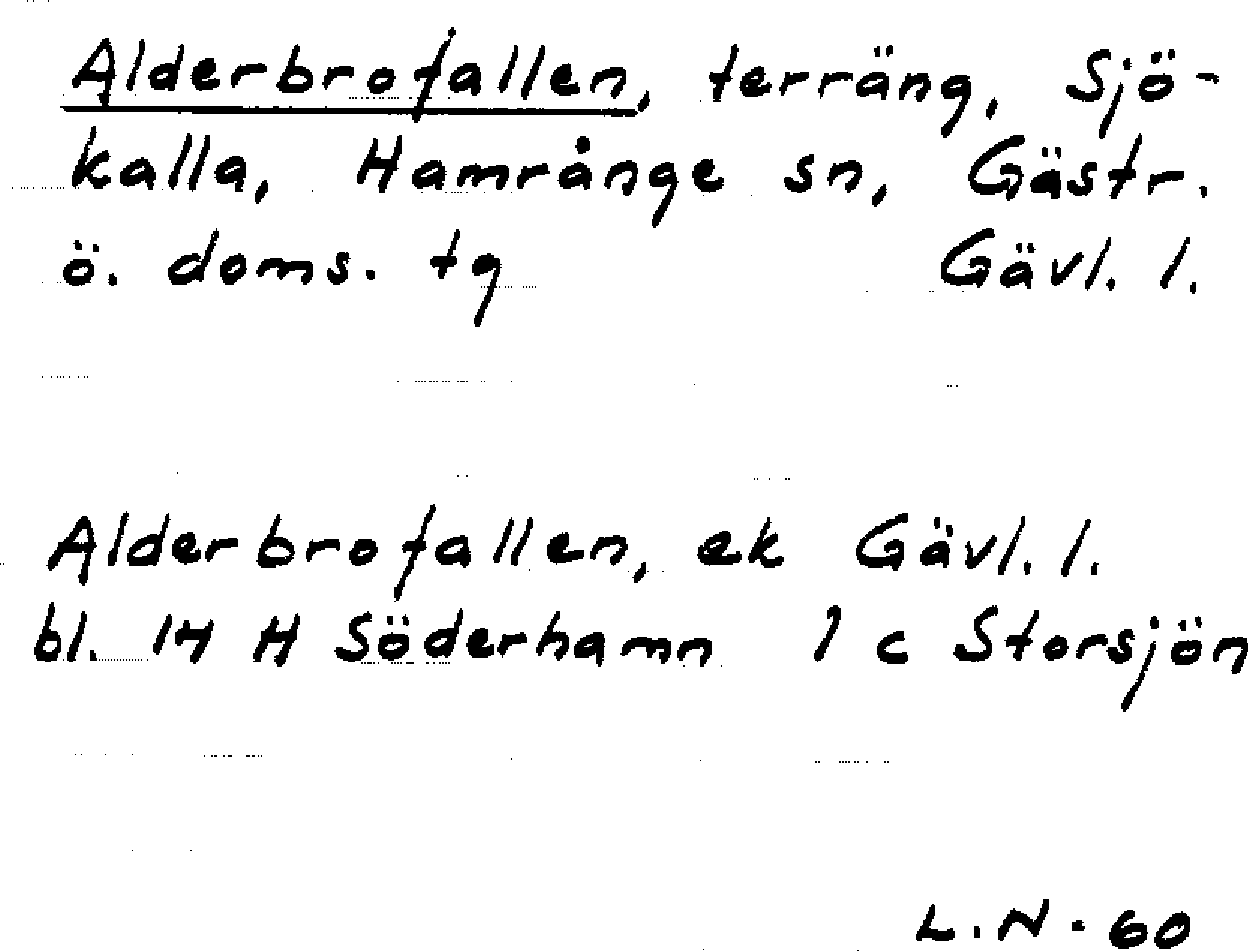 Alderbrofallen, terräng, Sjö-
kalla, Hamrånge sn, Gästr.
ö. doms. tg Gävl. l.
Alderbrofallen, ek Gävl. l.
bl. 14 H Söderhamn 1 c Storsjön
L.N-60